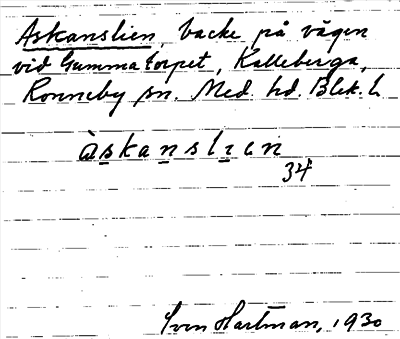 Askanslien backe på vägen
vid Gummatorpet, Kalleberga,
Ronneby sn. Med. hd. Blek. l.
àskanslıɛn
34
Sven Hartman, 1930